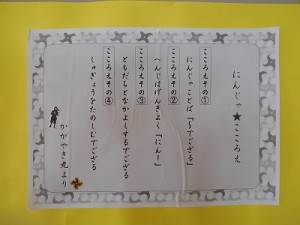 にんじゃ★こころえ
こころえその①
にんじゃことば「～でござる」
こころえその②
へんじはげんきよく「にん！」
こころえその③
ともだちとなかよーするでござる
こころえその④
しゅぎょうをたのしむでござる
かがやき丸より